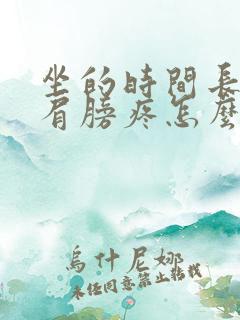 坐的時間長
肩膀疼怎麼
烏什尼娜
未經同意禁止轉載